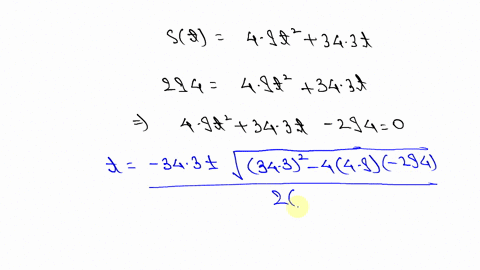 S(t) = 4.9t² + 34.3t
294 = 4.9t² + 34.3t
⇒ 4.9t² + 34.3t - 294 = 0
t = -34.3 ± √((34.3)² - 4(4.9)(-294)) / 2(